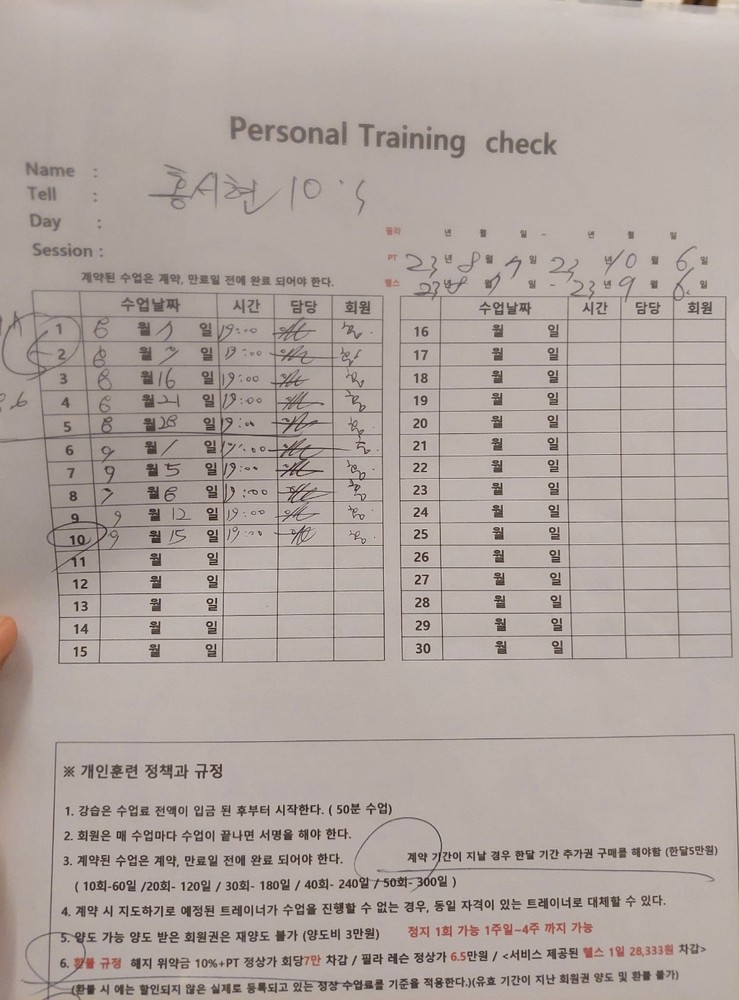 Personal Training check
Name :
Tell :
홍서현 10's
Day :
Session :
필라 년 월 일 - 년 월 일
PT 23년 8월 7일 23년 10월 6일
헬스 23년 8월 7일 - 23년 9월 6일
계약된 수업은 계약, 만료일 전에 완료 되어야 한다.
수업날짜 시간 담당 회원
수업날짜 시간 담당 회원
1 8월 7일 19:00
2 8월 일 19:00
3 8월 16일 19:00
4 8월 21일 19:00
5 8월 28일 19:00
6 9월 1일 19:00
7 9월 5일 19:00
8 월 일 19:00
9 9월 12일 19:00
10 9월 15일 19:00
11 월 일
12 월 일
13 월 일
14 월 일
15 월 일
16 월 일
17 월 일
18 월 일
19 월 일
20 월 일
21 월 일
22 월 일
23 월 일
24 월 일
25 월 일
26 월 일
27 월 일
28 월 일
29 월 일
30 월 일
※ 개인훈련 정책과 규정
1. 강습은 수업료 전액이 입금 된 후부터 시작한다. ( 50분 수업)
2. 회원은 매 수업마다 수업이 끝나면 서명을 해야 한다.
3. 계약된 수업은 계약, 만료일 전에 완료 되어야 한다. 계약 기간이 지날 경우 한달 기간 추가권 구매를 해야함 (한달5만원)
( 10회-60일 /20회- 120일 / 30회- 180일 / 40회- 240일 / 50회- 300일 )
4. 계약 시 지도하기로 예정된 트레이너가 수업을 진행할 수 없는 경우, 동일 자격이 있는 트레이너로 대체할 수 있다.
5. 양도 가능 양도 받은 회원권은 재양도 불가 (양도비 3만원) 정지 1회 가능 1주일~4주 까지 가능
6. 환불 규정 해지 위약금 10%+PT 정상가 회당7만 차감 / 필라 레슨 정상가 6.5만원 / <서비스 제공된 헬스 1일 28,333원 차감>
(환불 시 에는 할인되지 않은 실제로 등록되고 있는 정상 수업료를 기준을 적용한다.)(유효 기간이 지난 회원권 양도 및 환불 불가)